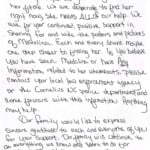 her people. We are desperate to find her
right now. She needs ALL of our help. We
ask for your continued, positive support in
sharing far and wide the posters and pictures
of Madalina. Each and every share may be
one step closer to finding her. If you believe
you have seen Madalina or have Any
information related to her whereabouts, please
contact your local law enforcement agency
or the Cornelius NC police department and
come forward with this information. Anything
may help.
Our family would like to express
sincere gratitude to each and everyone of you
for your support. Our family will continue to
do everything we know and learn to do for